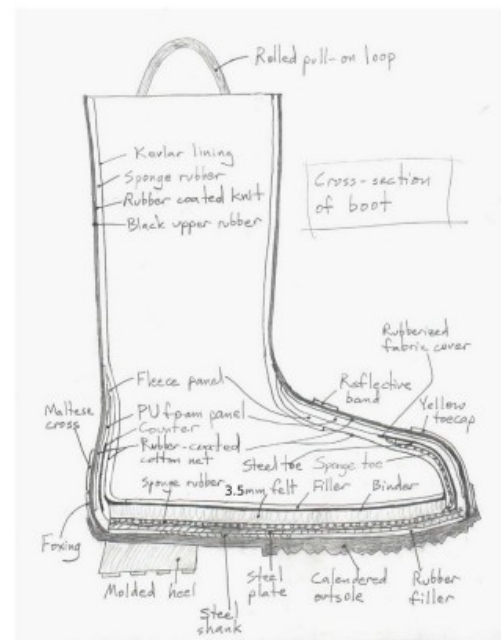 Rolled pull-on loop
Kevlar lining
Sponge rubber
Rubber coated knit
Black upper rubber
Cross-section
of boot
Rubberized
fabric cover
Reflective
band
Yellow
toecap
Fleece panel
Maltese
cross
PU foam panel
Counter
Rubber-coated
cotton net
Steel toe
Sponge toe
Sponge rubber
3.5mm felt
Filler
Binder
Foxing
Molded heel
Steel
shank
Steel
plate
Calendered
outsole
Rubber
filler